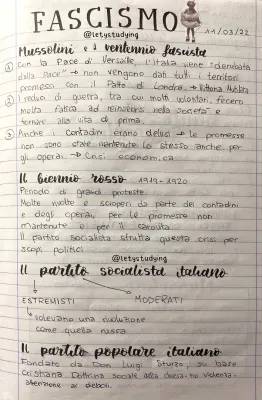 FASCISMO
@letystudying
11/03/22
Mussolini e il ventennio fascista
① Con la Pace di Versaille, l'Italia viene "derubata
dalla Pace" → non vengono dati tutti i territori
promessi con il Patto di Londra → Vittoria Mutilata
② I reduci di guerra, tra cui molti volontari, fecero
molta fatica ad reinserirsi nella società e
tornare alla vita di prima.
③ Anche i contadini erano delusi → le promesse
non sono state mantenute lo stesso anche per
gli operai → Crisi economica
Il biennio rosso 1919-1920
Periodo di grandi proteste.
Molte rivolte e scioperi da parte dei contadini
e degli operai, per le promesse non
mantenute e per il carovita
Il partito socialista sfrutta questa crisi per
scopi politici
@letystudying
Il partito socialista italiano
ESTREMISTI MODERATI
volevano una rivoluzione
come quella russa
Il partito popolare italiano
Fondato da Don Luigi Sturzo, su base
cristiana Dottrina sociale della chiesa: no violenza
attenzione ai deboli.